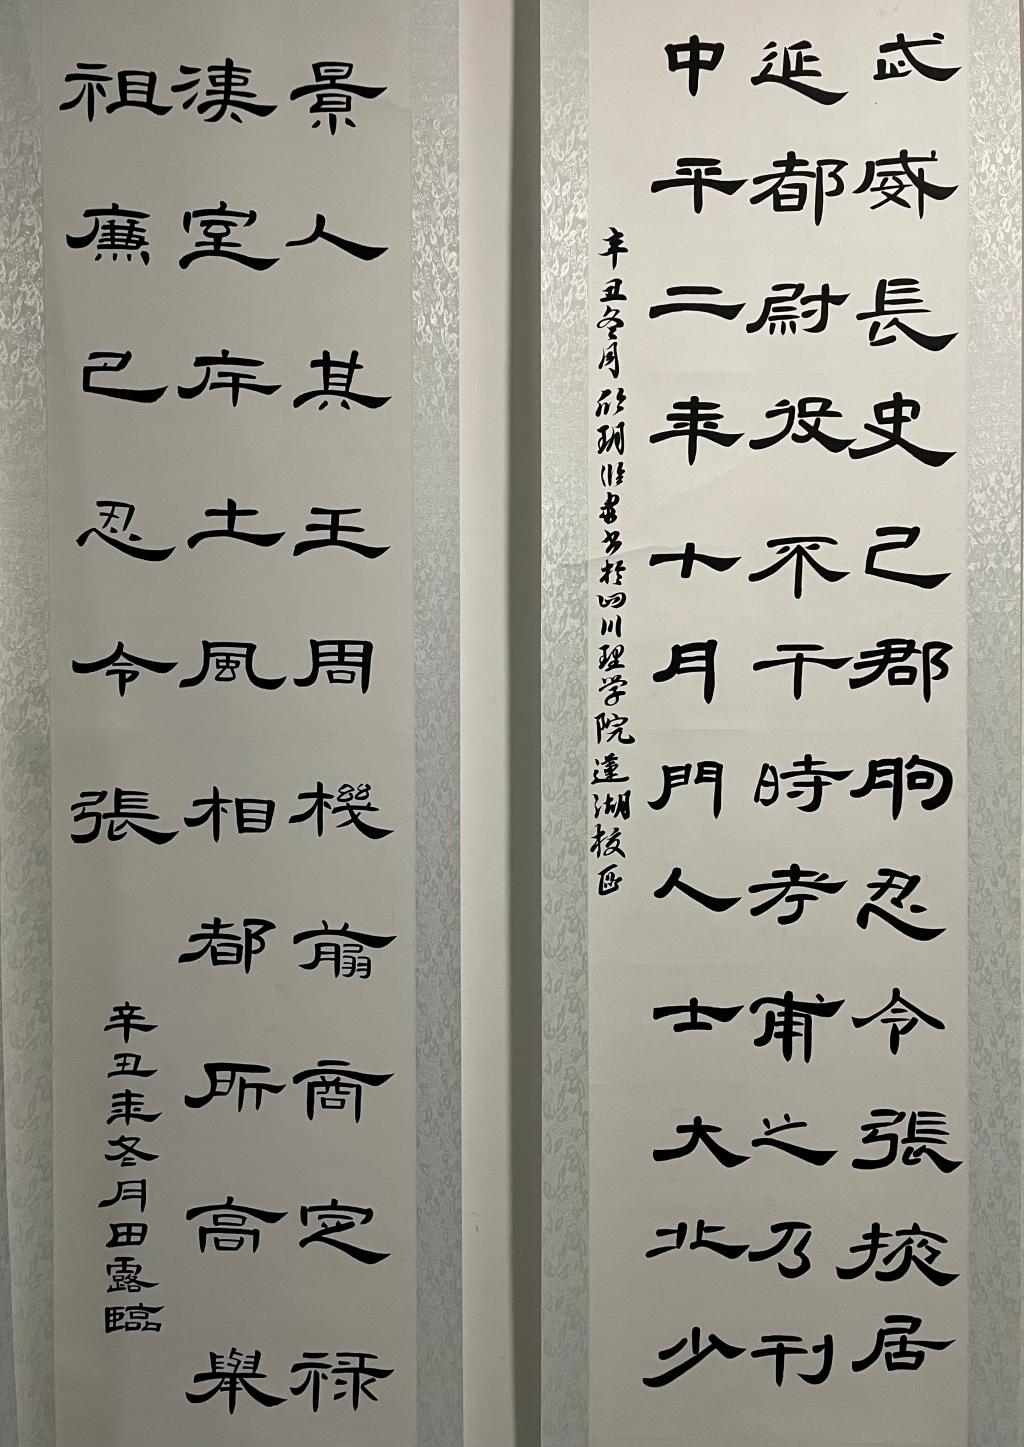 武威長史己郡朐忍令張掖居
延都尉役不干時孝甫之乃刊
中平二年十月門人士大北少
辛丑冬月欣玥临书於四川理学院蓮湖校区
景人其王周機翦商定禄
漢室序土風相都所高舉
祖廉己忍令張
辛丑年冬月田露臨